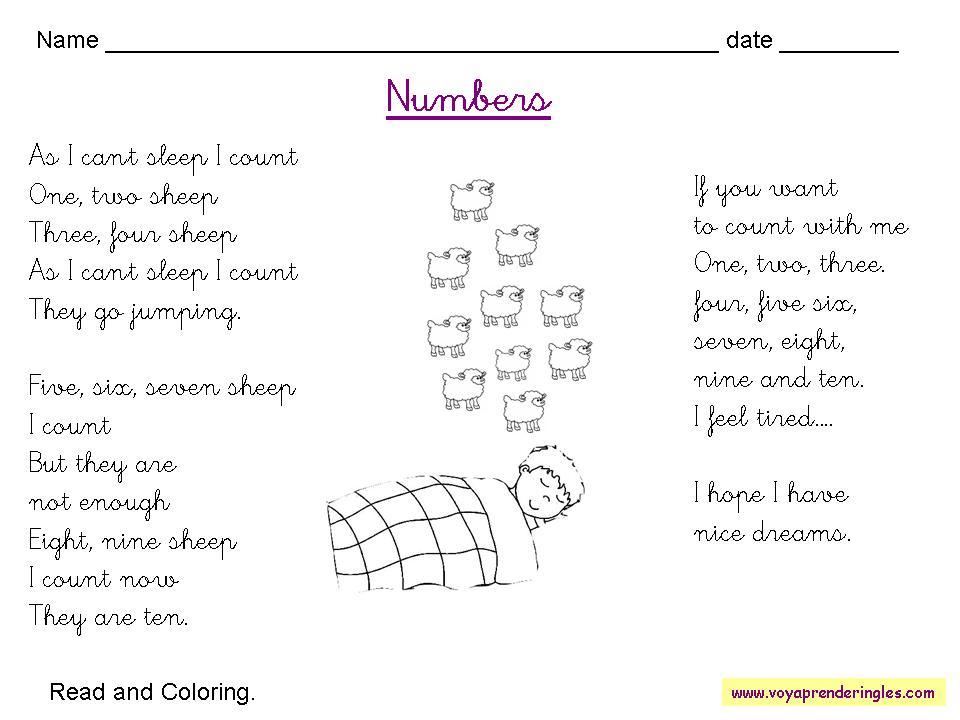 Name ______________________________________________ date _________
Numbers
As I cant sleep I count
One, two sheep
Three, four sheep
As I cant sleep I count
They go jumping.
Five, six, seven sheep
I count
But they are
not enough
Eight, nine sheep
I count now
They are ten.
If you want
to count with me
One, two, three.
four, five six,
seven, eight,
nine and ten.
I feel tired....
I hope I have
nice dreams.
Read and Coloring.
www.voyaprenderingles.com